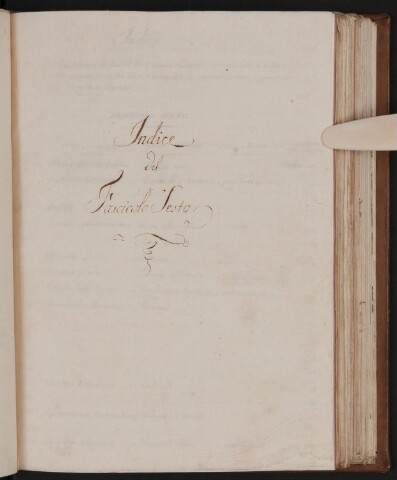 Indice
del
Fascicolo Sesto